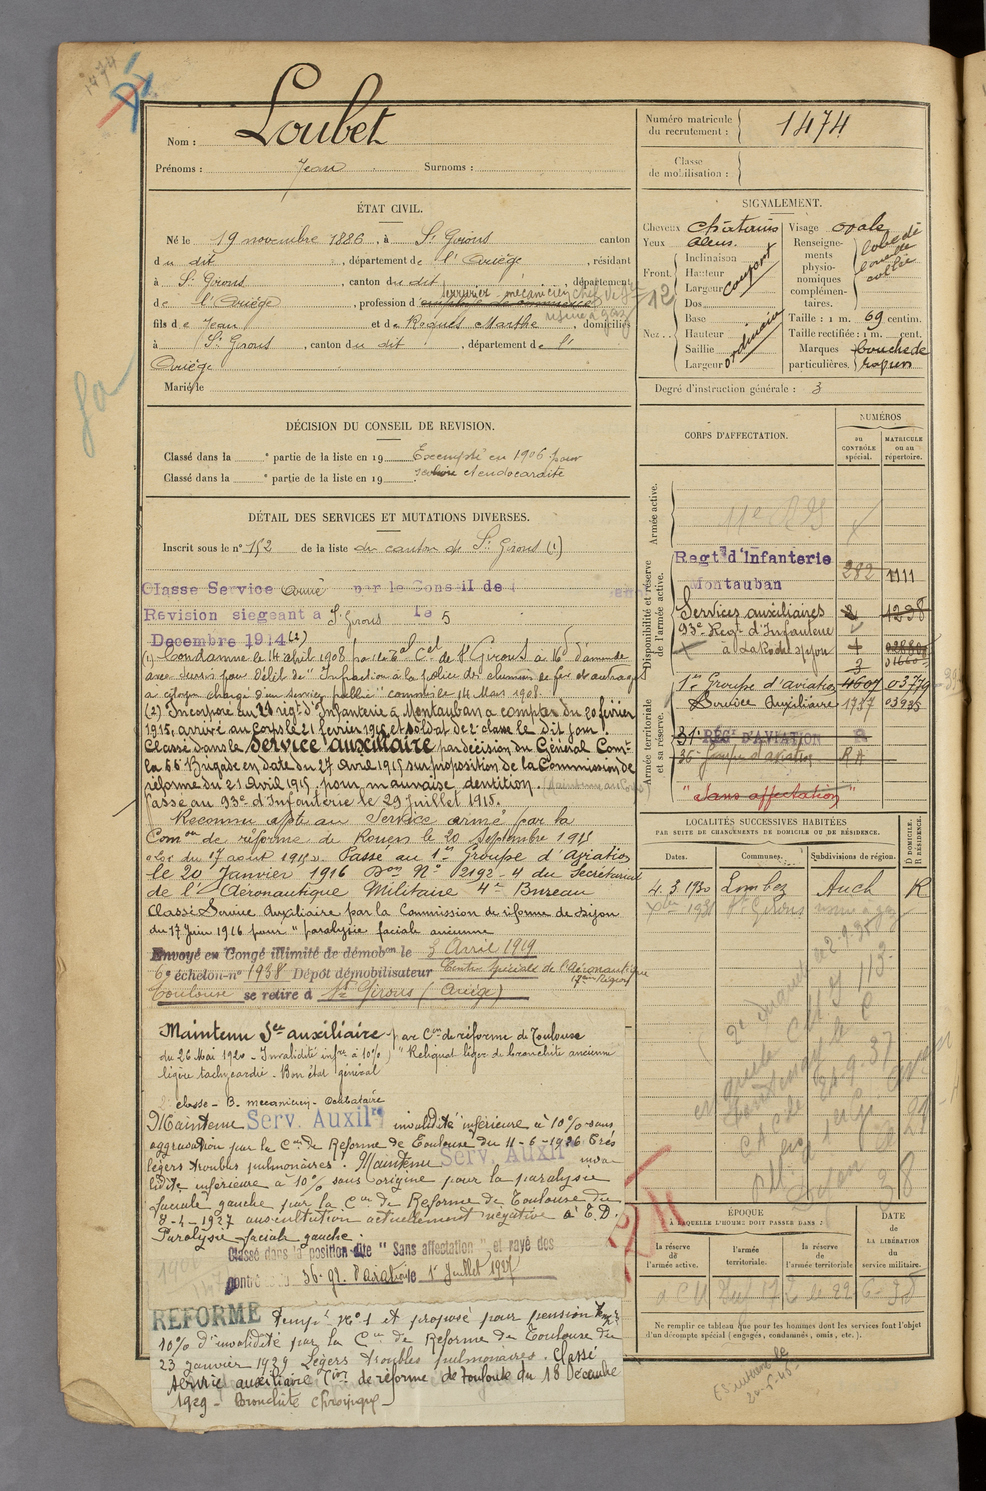 1474
Nom : Loubet
Prénoms : Jean Surnoms :
ÉTAT CIVIL.
Né le 19 novembre 1886, à St Girons canton
du dit, département de l'Ariège, résidant
à St Girons, canton du dit, département
de l'Ariège, profession d'employé de commerce
serrurier mécanicien
usine à gaz
fils de Jean et de Roques Marthe, domiciliés
à St Girons, canton du dit, département de l'
Ariège
Marié le
DÉCISION DU CONSEIL DE REVISION.
Classé dans la e partie de la liste en 19 Exempté en 1906 pour
Classé dans la e partie de la liste en 19 et endocardite
DÉTAIL DES SERVICES ET MUTATIONS DIVERSES.
Inscrit sous le n° 152 de la liste du canton de St Girons (1)
Classe Service armé par le Conseil de
Revision siegeant a St Girons le 5
Decembre 1914 (2)
(1) Condamné le 14 avril 1908 par le de St Girons à 16 d'amende
avec sursis pour délit de "Infraction à la police des chemins de fer et outrages
à citoyen chargé d'un service public" commis le 14 Mars 1908.
(2) Incorporé au régt d'Infanterie à Montauban à compter du 20 février
1915, arrivé au corps le 21 février 1915 et soldat de 2e classe le dit jour.
Classé dans le Service auxiliaire par décision du Général Comt
la 66e Brigade en date du 27 Avril 1915 sur proposition de la Commission de
réforme du 21 Avril 1915, pour mauvaise dentition.
Passé au 93e d'Infanterie le 29 Juillet 1915.
Reconnu apte au Service armé par la
Comon de réforme de Rouen le 20 Septembre 1915
Loi du 17 août 1915. Passé au 1er Groupe d'Aviation
le 20 Janvier 1916 Don N° 2192-4 du Secrétariat
de l'Aéronautique Militaire 4e Bureau
Classé Service Auxiliaire par la Commission de réforme de Dijon
du 17 Juin 1916 pour "paralysie faciale ancienne
Envoyé en Congé illimité de démobon le 5 Avril 1919
6e échelon-n° 1938 Dépôt démobilisateur Centre Spéciale de l'Aéronautique
17e Région
Toulouse se retire à St Girons (Ariège)
Maintenu Sce auxiliaire par Con de réforme de Toulouse
du 26 Mai 1920 - Invalidité infre à 10% "Reliquat léger de bronchite ancienne
légère tachycardie - Bon état général
classe - B. mecanicien -
Maintenu Serv. Auxilre invalidité inférieure à 10% sans
aggravation par la Con de Réforme de Toulouse du 11-6-1926 Très
légers troubles pulmonaires. Maintenu Serv. Auxil inva-
lidité inférieure à 10% sans origine pour la paralysie
faciale gauche par la Con de Réforme de Toulouse du
8-4-1927 auscultation actuellement négative à E.D.
Paralysie faciale gauche.
Classé dans la position dite "Sans affectation" et rayé des
contrôles du 36e gr. d'aviation le 1er Juillet 1927
REFORME Tempre n° 1 et proposé pour pension Tempre
10% d'invalidité par la Con de Réforme de Toulouse du
23 Janvier 1929 Légers troubles pulmonaires. Classé
Service auxiliaire Con de réforme de Toulouse du 18 Décembre
1929 - Bronchite chronique -
Numéro matricule
du recrutement : 1474
Classe
de mobilisation :
SIGNALEMENT.
Cheveux châtains Visage ovale
Yeux bleus.
Renseigne-
ments
physio-
nomiques
complémen-
taires.
Front. Inclinaison
Hauteur
Largeur
Nez.. Dos
Base
Hauteur
Saillie
Largeur ordinaire
Taille : 1 m. 69 centim.
Taille rectifiée : 1 m. cent.
Marques
particulières. bouche de
Degré d'instruction générale : 3
CORPS D'AFFECTATION.
NUMÉROS
au
CONTRÔLE
spécial.
MATRICULE
ou au
répertoire.
Armée active.
Disponibilité et réserve
de l'armée active.
Regt d'Infanterie
Montauban 282 1111
Services auxiliaires 2 1238
93e Regt d'Infanterie
à La Roche s/ yon
1er Groupe d'aviation 4607 03779
Service Auxiliaire 1737 03935
Armée territoriale
et sa réserve.
31e RÉGT D'AVIATION R
36e Groupe d'aviation RA
"Sans affectation"
LOCALITÉS SUCCESSIVES HABITÉES
PAR SUITE DE CHANGEMENTS DE DOMICILE OU DE RÉSIDENCE.
D DOMICILE.
R RÉSIDENCE.
Dates. Communes. Subdivisions de région.
4.3.1930 Lombez Auch R
Xbre 1931 St Girons usine à gaz
ÉPOQUE
À LAQUELLE L'HOMME DOIT PASSER DANS :
la réserve
de l'armée active.
l'armée
territoriale.
la réserve
de l'armée territoriale
DATE
de
LA LIBÉRATION
du
service militaire.
Ne remplir ce tableau que pour les hommes dont les services font l'objet
d'un décompte spécial (engagés, condamnés, omis, etc.).